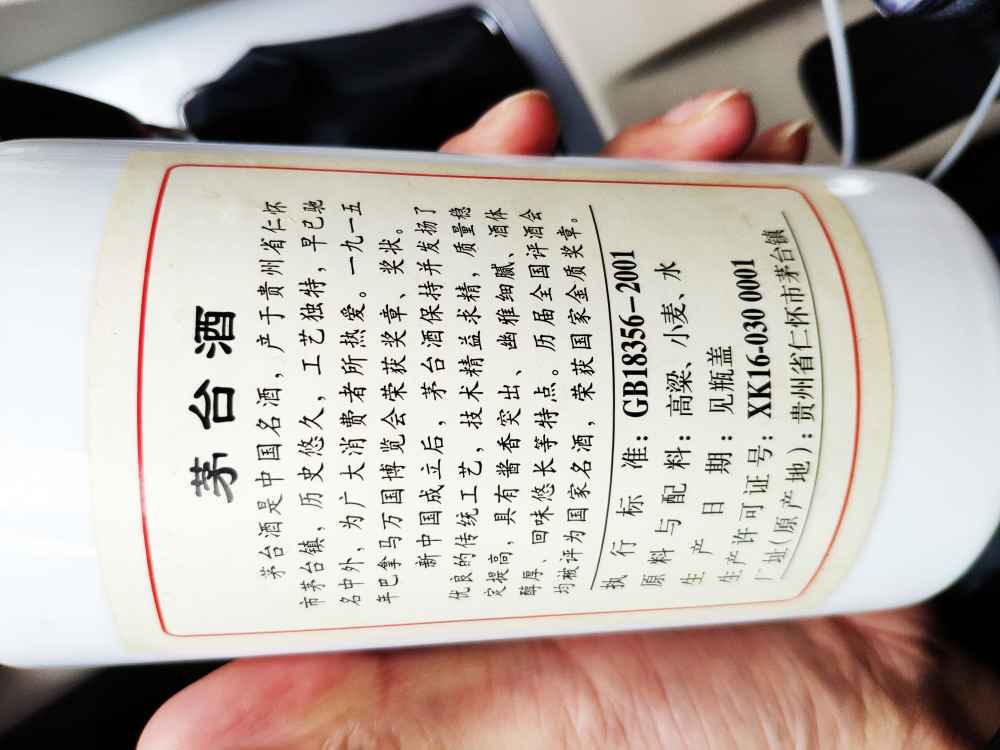 茅台酒
茅台酒是中国名酒，产于贵州省仁怀
市茅台镇，历史悠久，工艺独特，早已驰
名中外，为广大消费者所热爱。一九一五
年巴拿马万国博览会荣获奖章、奖状。
新中国成立后，茅台酒保持并发扬了
优良的传统工艺，技术精益求精，质量稳
定提高，具有酱香突出、幽雅细腻、酒体
醇厚、回味悠长等特点。历届全国评酒会
均被评为国家名酒，荣获国家金质奖章。
执行标准：GB18356-2001
原料与配料：高粱、小麦、水
生产日期：见瓶盖
生产许可证号：XK16-030 0001
厂址(原产地)：贵州省仁怀市茅台镇